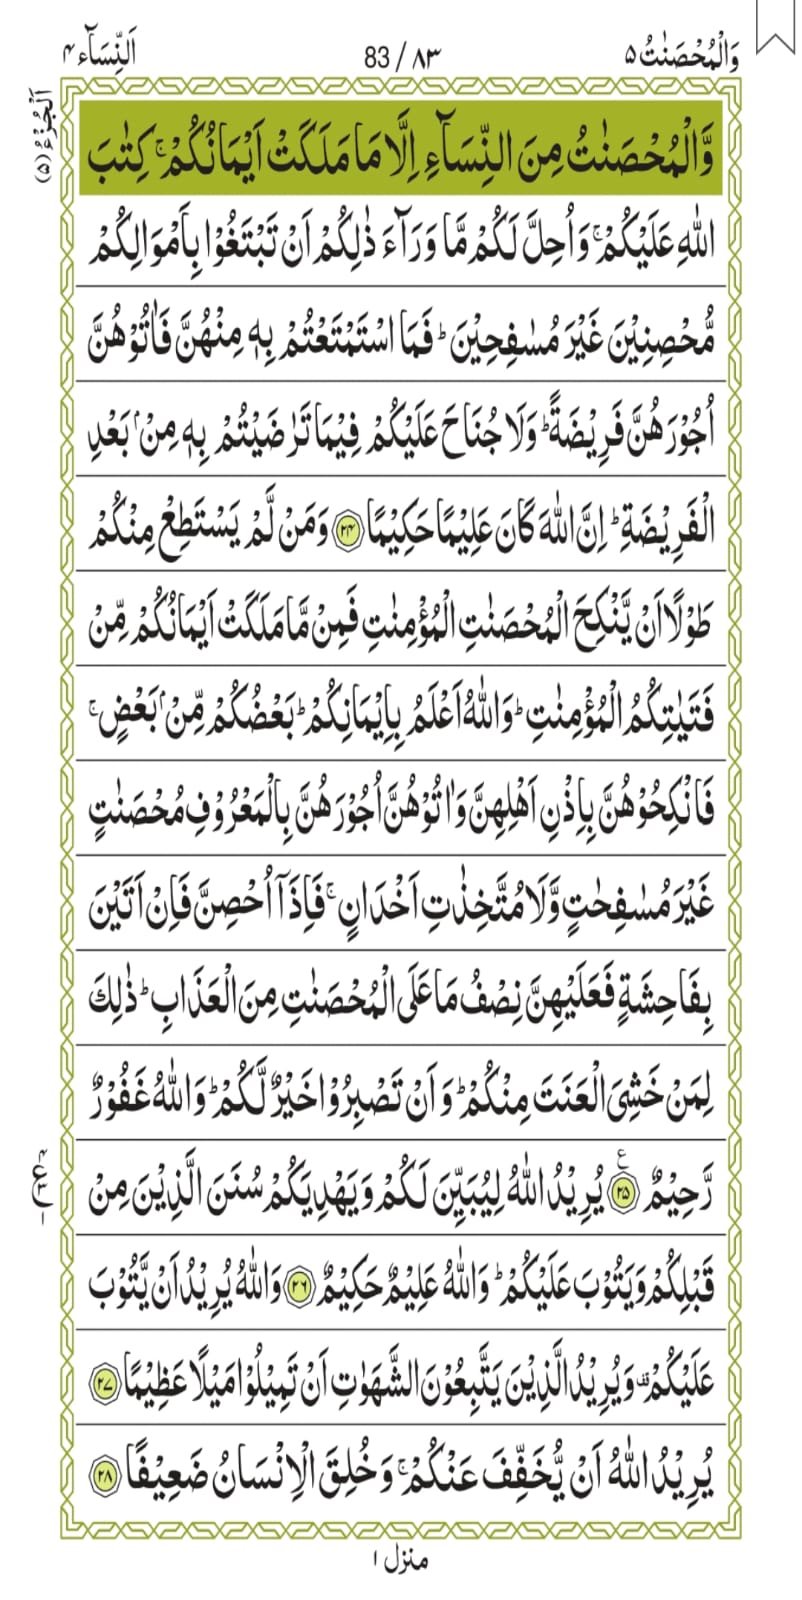 اَلنِّسَآء ۴
83 / ۸۳
وَالْمُحْصَنٰتُ ۵
اَلْجُزْءُ (۵)
وَّالْمُحْصَنٰتُ مِنَ النِّسَآءِ اِلَّا مَا مَلَكَتْ اَيْمَانُكُمْ ۚ كِتٰبَ
اللّٰهِ عَلَيْكُمْ ۚ وَاُحِلَّ لَكُمْ مَّا وَرَآءَ ذٰلِكُمْ اَنْ تَبْتَغُوْا بِاَمْوَالِكُمْ
مُّحْصِنِيْنَ غَيْرَ مُسٰفِحِيْنَ ؕ فَمَا اسْتَمْتَعْتُمْ بِهٖ مِنْهُنَّ فَاٰتُوْهُنَّ
اُجُوْرَهُنَّ فَرِيْضَةً ؕ وَلَا جُنَاحَ عَلَيْكُمْ فِيْمَا تَرٰضَيْتُمْ بِهٖ مِنْۢ بَعْدِ
الْفَرِيْضَةِ ؕ اِنَّ اللّٰهَ كَانَ عَلِيْمًا حَكِيْمًا ۲۴ وَمَنْ لَّمْ يَسْتَطِعْ مِنْكُمْ
طَوْلًا اَنْ يَّنْكِحَ الْمُحْصَنٰتِ الْمُؤْمِنٰتِ فَمِنْ مَّا مَلَكَتْ اَيْمَانُكُمْ مِّنْ
فَتَيٰتِكُمُ الْمُؤْمِنٰتِ ؕ وَاللّٰهُ اَعْلَمُ بِاِيْمَانِكُمْ ؕ بَعْضُكُمْ مِّنْۢ بَعْضٍ ۚ
فَانْكِحُوْهُنَّ بِاِذْنِ اَهْلِهِنَّ وَاٰتُوْهُنَّ اُجُوْرَهُنَّ بِالْمَعْرُوْفِ مُحْصَنٰتٍ
غَيْرَ مُسٰفِحٰتٍ وَّلَا مُتَّخِذٰتِ اَخْدَانٍ ۚ فَاِذَاۤ اُحْصِنَّ فَاِنْ اَتَيْنَ
بِفَاحِشَةٍ فَعَلَيْهِنَّ نِصْفُ مَا عَلَى الْمُحْصَنٰتِ مِنَ الْعَذَابِ ؕ ذٰلِكَ
لِمَنْ خَشِىَ الْعَنَتَ مِنْكُمْ ؕ وَاَنْ تَصْبِرُوْا خَيْرٌ لَّكُمْ ؕ وَاللّٰهُ غَفُوْرٌ
رَّحِيْمٌ ۲۵ ع يُرِيْدُ اللّٰهُ لِيُبَيِّنَ لَكُمْ وَيَهْدِيَكُمْ سُنَنَ الَّذِيْنَ مِنْ
قَبْلِكُمْ وَيَتُوْبَ عَلَيْكُمْ ؕ وَاللّٰهُ عَلِيْمٌ حَكِيْمٌ ۲۶ وَاللّٰهُ يُرِيْدُ اَنْ يَّتُوْبَ
عَلَيْكُمْ ۟ وَيُرِيْدُ الَّذِيْنَ يَتَّبِعُوْنَ الشَّهَوٰتِ اَنْ تَمِيْلُوْا مَيْلًا عَظِيْمًا ۲۷
يُرِيْدُ اللّٰهُ اَنْ يُّخَفِّفَ عَنْكُمْ ۚ وَخُلِقَ الْاِنْسَانُ ضَعِيْفًا ۲۸
منزل ۱